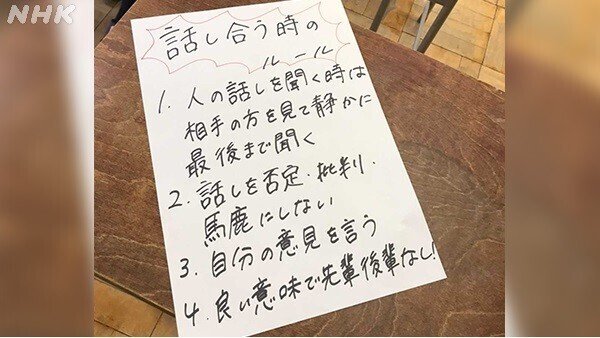 NHK
話し合う時の
ルール
1. 人の話しを聞く時は
相手の方を見て静かに
最後まで聞く
2. 話しを否定・批判・
馬鹿にしない
3. 自分の意見を言う
4. 良い意味で先輩後輩なし!